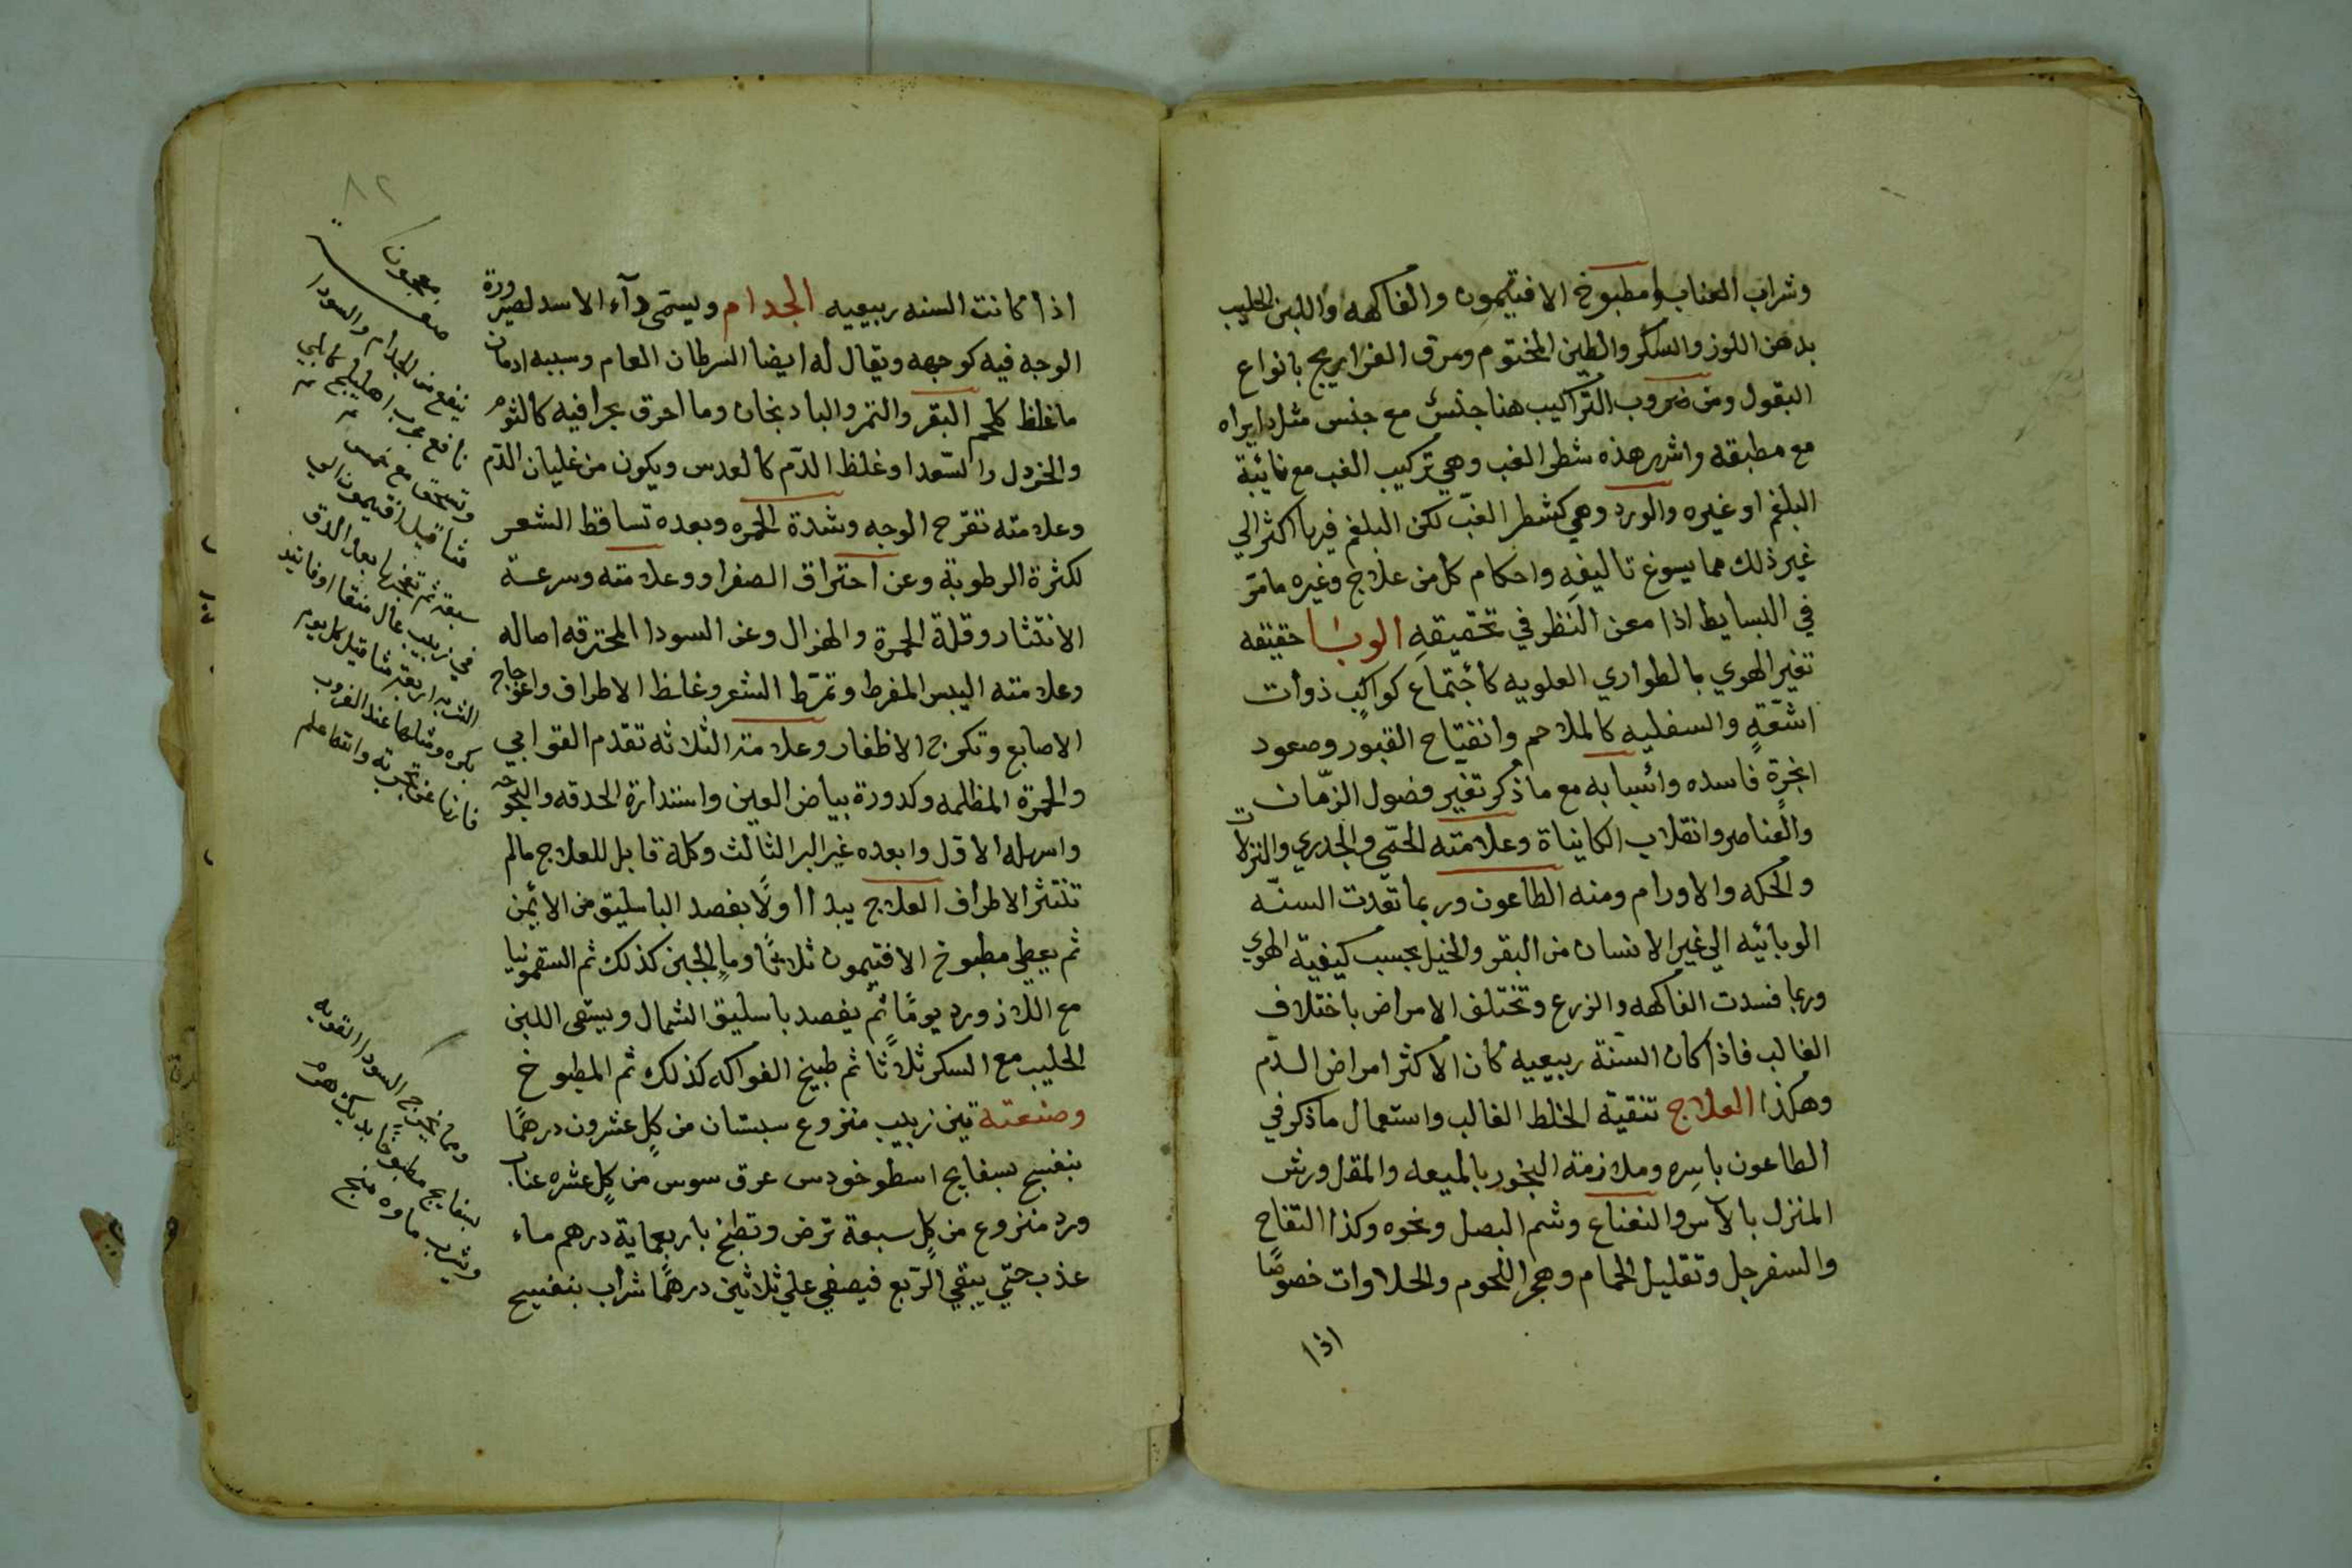 وشراب العناب ومطبوخ الافتيمون والفاكهه واللبن الحليب
بدهن اللوز والسكر والطين المختوم ومرق الفراريج بانواع
البقول ومن ضروب التراكيب هنا جنس مع جنس مثل دايراه
مع مطبقه واشهر هذه شطر الغب وهي تركيب الغب مع نائبة
البلغم او غيره والورد وهي كشطر الغب لكن البلغم فيها اكثر الي
غير ذلك مما يسوغ تاليفه واحكام كل من علاج وغيره مامر
في البسايط اذا معن النظر في تحقيقه الوبا حقيقه
تغير الهوي بالطواري العلويه كأجتماع كواكب ذوات
اشعة والسفليه كالملاحم وانفتاح القبور وصعود
ابخرة فاسده واسبابه مع ماذكر تغير فصول الزمان
والعناصر وانقلاب الكايناة وعلامته الحمي والجدري والنزلات
والحكه والاورام ومنه الطاعون وربما تعدت السنه
الوبائيه الي غير الانسان من البقر والخيل بحسب كيفية الهوي
وربما فسدت الفاكهه والزرع وتختلف الامراض باختلاف
الغالب فاذا كان السنة ربيعيه كان الاكثر امراض الدم
وهكذا العلاج تنقية الخلط الغالب واستعمال ماذكر في
الطاعون باسره وملازمة البخور بالميعه والمقل ورش
المنزل بالاس والنعناع وشم البصل ونحوه وكذا التفاح
والسفرجل وتقليل الحمام وهجر اللحوم والحلاوات خصوصا
اذا
٨٢
اذا كانت السنه ربيعيه الجدام ويسمي دآء الاسد لصيرورة
الوجه فيه كوجهه ويقال له ايضا السرطان العام وسببه ادمان
ماغلظ كلحم البقر والتمر والبادنجان وما احرق بحرافيه كالثوم
والخردل والسعدا وغلظ الدم كالعدس ويكون من غليان الدم
وعلامته تقرح الوجه وشدة الحمره وبعده تساقط الشعر
لكثرة الرطوبة وعن احتراق الصفرا ووعلامته وسرعة
الانتثار وقلة الحمرة والهزال وعن السودا المحترقه اصاله
وعلامته اليبس المفرط وتمرط الشعر وغلظ الاطراف واعوجاج
الاصابع وتكوج الاظفار وعلامة الثلاثه تقدم القوابي
والحمرة المظلمه وكدورة بياض العين واستدارة الحدقه والبحوحه
واسهله الاول وابعده غير البر الثالث وكله قابل للعلاج مالم
تنتثر الاطراف العلاج يبدا اولا بفصد الباسليق من الايمن
ثم يعطي مطبوخ الافتيمون ثلاثا وما الجبن كذلك ثم السقمونيا
مع اللاذورد يوما ثم يفصد باسليق الشمال ويسقي اللبن
الحليب مع السكر ثلاثا ثم طبيخ الفواكه كذلك ثم المطبوخ
وصنعته تين زبيب منزوع سبستان من كل عشرون درهما
بنفسج بسفايج اسطوخودس عرق سوس من كل عشره عناب
ورد منزوع من كل سبعة ترض وتطبخ باربعماية درهم ماء
عذب حتي يبقي الربع فيصفي علي ثلاثين درهما شراب بنفسج
معجون
صفة
ينفع من الجدام والسودا
نافع مجرب اهليلج كابلي
وتسحق مع خمس
مثاقيل افتيمون
سبعة ثم تعجنها بعد الدق
في زبيب عال منقا او فانيد
الشربه اربعة مثاقيل كل يوم
بكره ومثلها عند الغروب
فانها عن تجربه والله اعلم
ومما يخرج السودا القويه
بسفايج مطبوخا بديك هرم
ويشرب ماوه منج